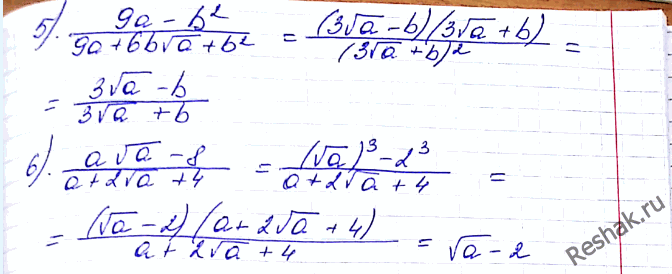 5). (9a - b²)/(9a + 6b√a + b²) = ((3√a - b)(3√a + b))/((3√a + b)²) =
= (3√a - b)/(3√a + b)
6). (a√a - 8)/(a + 2√a + 4) = ((√a)³ - 2³)/(a + 2√a + 4) =
= ((√a - 2)(a + 2√a + 4))/(a + 2√a + 4) = √a - 2
Reshak.ru